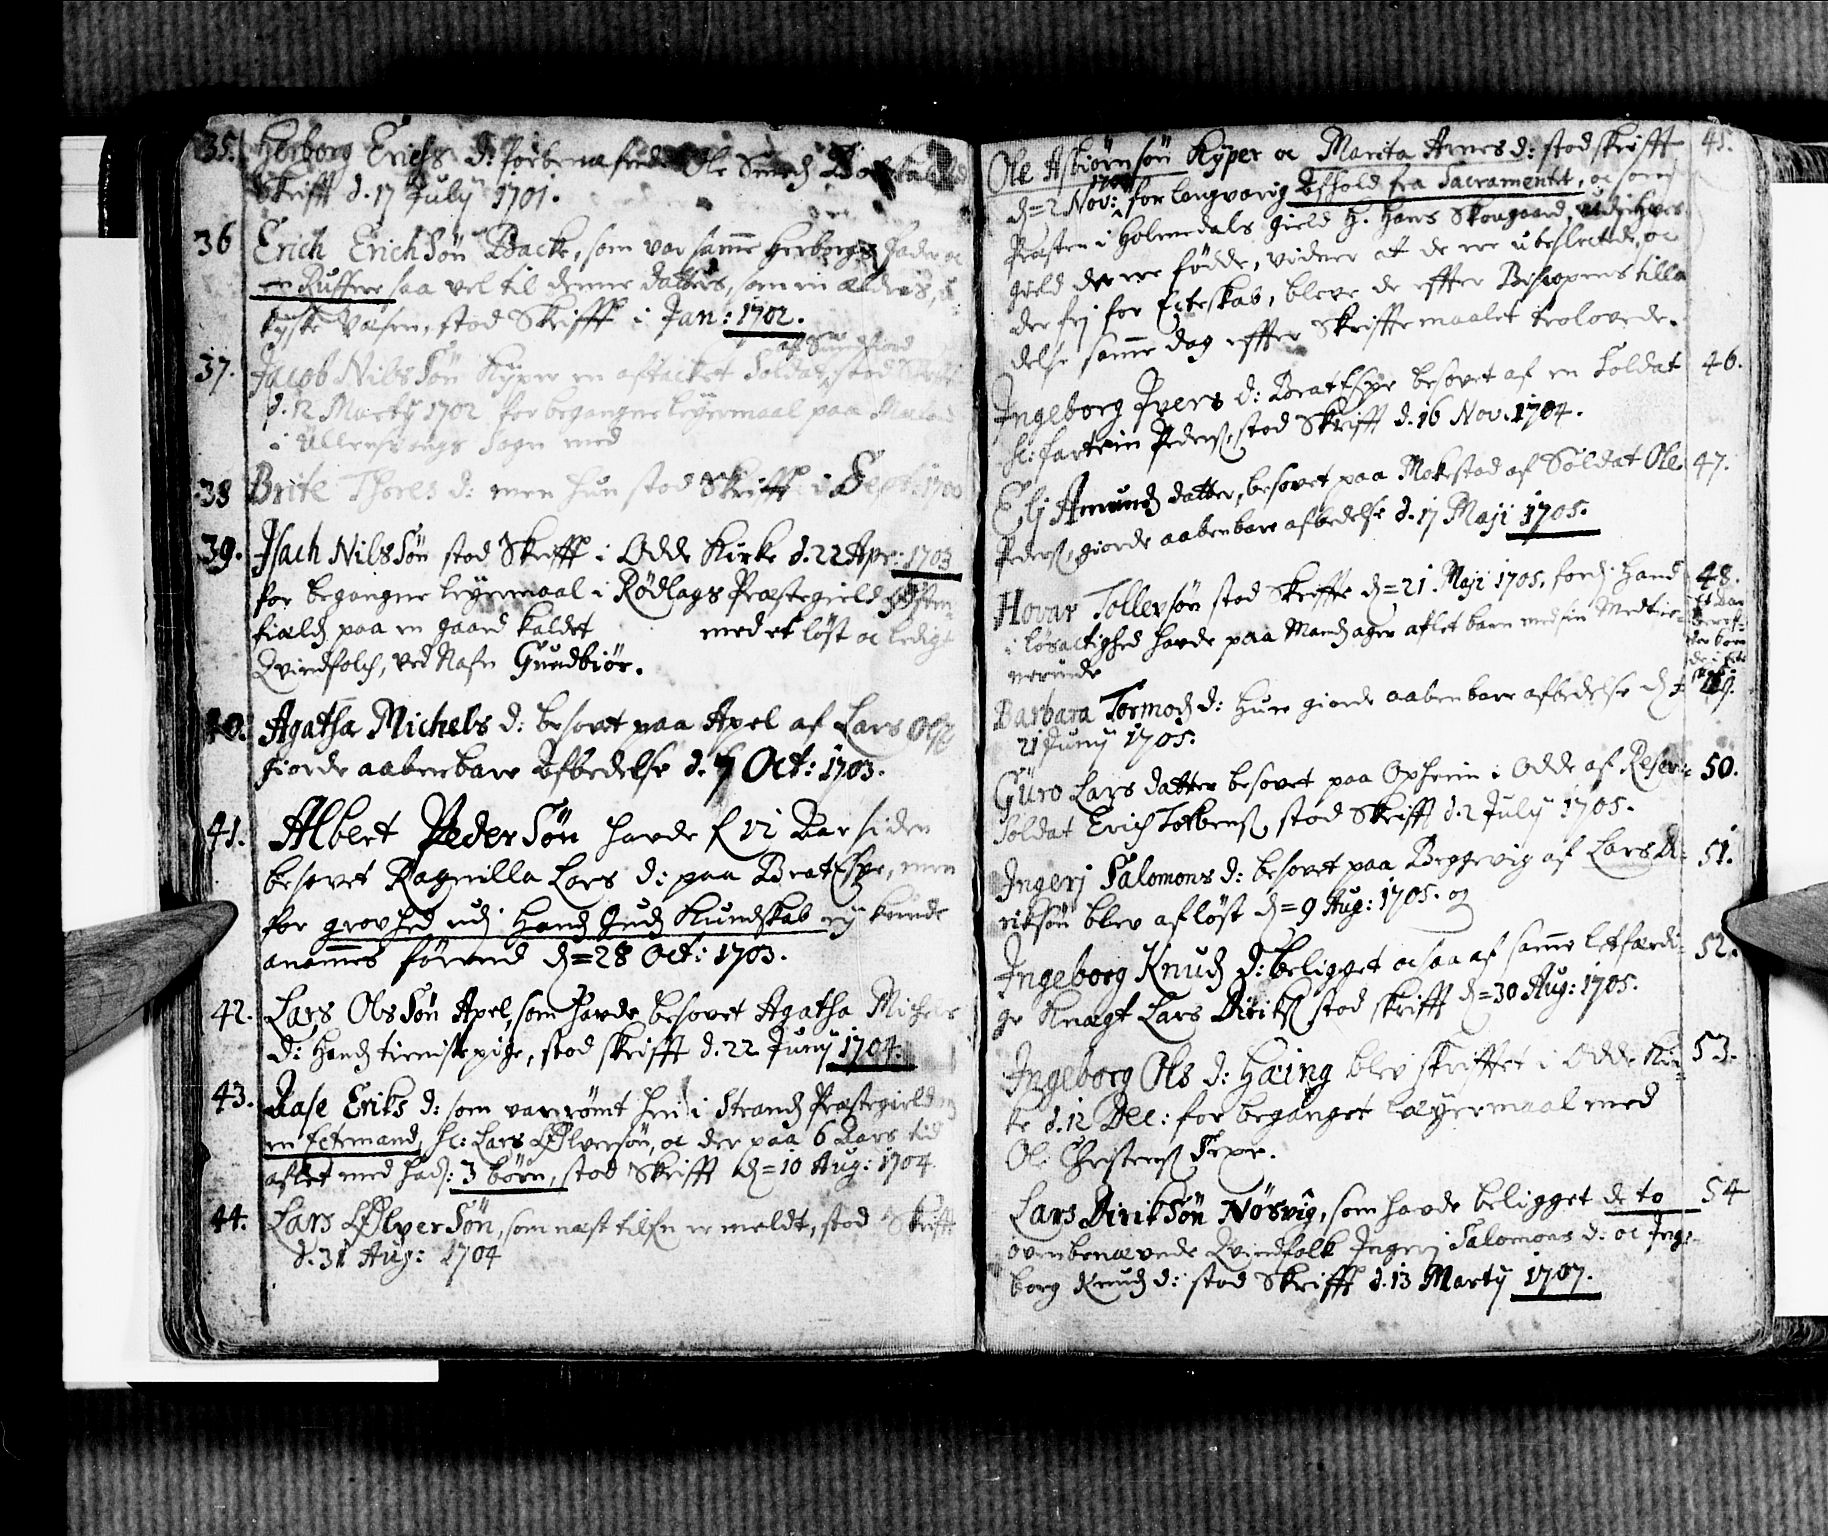 35. Herborg Erichs d: Ole
Skrifft d. 17 July 1701.
36 Erich ErichSøn Backe, som var samme Herborgs Fader oc
en Ruffere saa vel til denne datters, som
kyske Væsen, stod Skrifft i Jan: 1702.
37. Jacob NilsSøn Kyper en aftacket Soldat, stod Skrifft
d. 12 Martij 1702 for begangne leyermaal paa
i Ullensvangs Sogn med
38 Brite Thores d: men hun stod Skrifft i Sept: 1700
39. Isach NilsSøn stod Skrifft i Odde Kirke d. 22 Apr: 1703
for begangne leyermaal i Rödlags Præstegield
field paa en gaard kaldet med et løst oc ledigt
Qvindfolck, ved Nafn Gundbiør.
40. Agatha Michels d: besovet paa Apel af Lars Ols
giorde aabenbare Afbedelse d. 7 Oct: 1703.
41. Albert PederSøn hafde f 12 Aar siden
besovet Ragnilla Lars d: paa Bratespe, men
for grovhed udi hans Guds Kundskab ey kunde
anammes førend d=28 Oct: 1703.
42. Lars OlsSøn Apel, som hafde besovet Agatha Michels
d: hans tieniste pige, stod skrifft d. 22 Juny 1704.
43. Aase Eriks d: som var rømt hen i Strands Præstegield
en Ectemand, Lars Ølversøn, oc der paa 6 Aars tid
aflet med 3 børn, stod Skrifft d=10 Aug: 1704
44. Lars ØlverSøn, som næst tilfn er meldt, stod Skrifft
d. 31 Aug: 1704
Ole Asbiørnsøn Kyper oc Marita Arnes d: stod skrifft 45.
d=2 Nov: for langvarig Afhold fra Sacramentet, oc som
Præsten i Holmedals gield H. Hans Skougaard, udj hvis
gield de ere fødde, vidner at de ere ubeslectede, oc
der frj for Ecteskab, bleve de effter Bispopens tilla
delse samme dag effter Skrifftemaalet trolovede.
Ingeborg Ivers d: Bratespe besovet af en Soldat 46.
Peders, stod Skrifft d. 16 Nov. 1704.
Elj Amunds datter, besovet paa Mokestad af Soldat Ole 47.
Peders, giorde aabenbare afbedelse d. 17 Maji 1705.
Hovar Tollevsøn stod Skriffte d=21. Maji 1705. fordi hand 48.
i løsactighed hafde paa Mandsager aflet barn med sin
Barbara Tormods d: Hure giorde aabenbare afbedelse d= 49.
21 Juny 1705.
Guro Lars datter besovet paa Opheim i Odde af Reserve= 50.
Soldat Erich Torbens, stod Skrifft d. 2 July 1705.
Ingerj Salomons d: besovet paa Beggevig af Lars Di= 51.
riksøn blev afløst d=9 Aug: 1705. og
Ingeborg Knuds d: beligget ocsaa af samme letfærdi= 52.
ge Knægt Lars Diriks stod skrifft d=30 Aug: 1705.
Ingeborg Ols d: Hæing blev skrifftet i Odde Kir= 53.
ke d. 12 Dec: for begånget Leyermaal med
Ol: Christens Sexe.
Lars DirikSøn Nösvig, som hafde beligget de to 54
ovenbenævnde Qvindfolk Ingerj Salomons d: oc Inge=
borg Knuds d: stod Skrifft d. 13 Martij 1707.